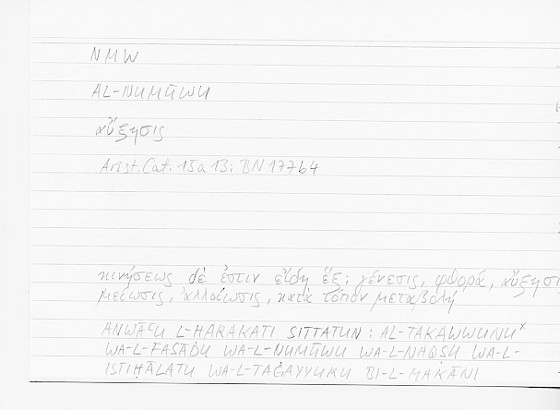 NMW
AL-NUMŪWU
αὔξησις
Arist. Cat. 15a13; BN 177b4
κινήσεως δέ ἐστιν εἴδη ἕξ; γένεσις, φθορά, αὔξησι
μείωσις, ἀλλοίωσις, κατὰ τόπον μεταβολή
ANWĀʿU L-ḤARAKATI SITTATUN: AL-TAKAWWUNU×
WA-L-FASĀDU WA-L-NUMŪWU WA-L-NAQṢU WA-L-
ISTIḤĀLATU WA-L-TAĠAYYURU BI-L-MAKĀNI